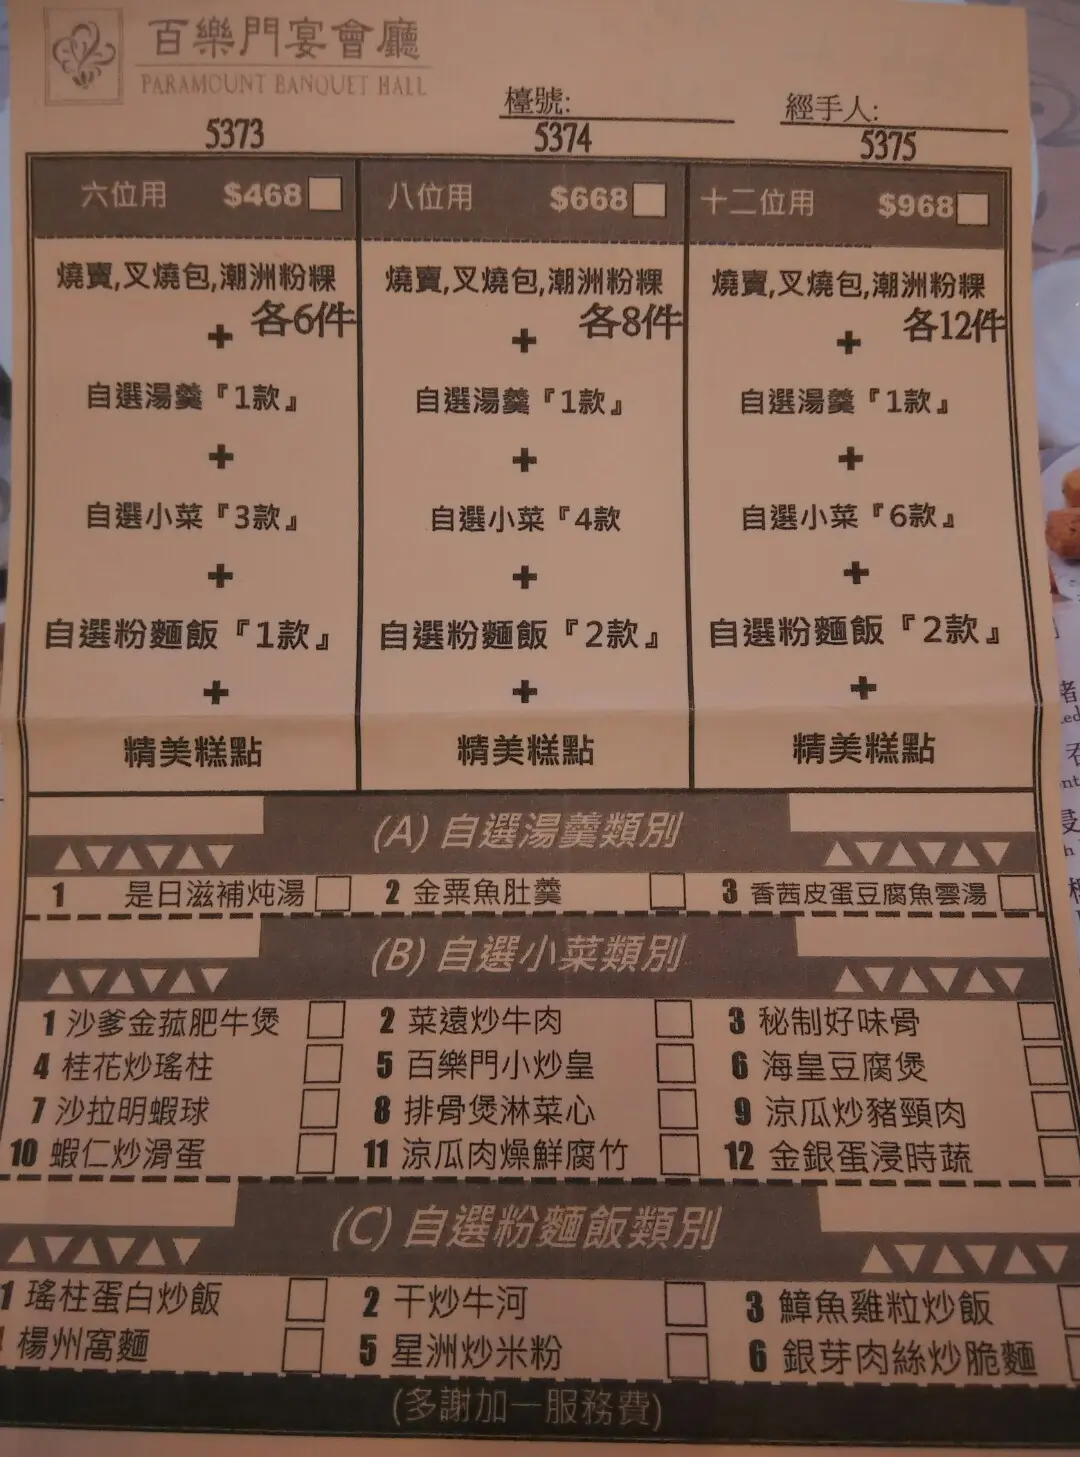 百樂門宴會廳
PARAMOUNT BANQUET HALL
檯號:
經手人:
5373 5374 5375
六位用 $468 八位用 $668 十二位用 $968
燒賣,叉燒包,潮洲粉粿 燒賣,叉燒包,潮洲粉粿 燒賣,叉燒包,潮洲粉粿
+ 各6件 + 各8件 + 各12件
自選湯羹『1款』 自選湯羹『1款』 自選湯羹『1款』
+ + +
自選小菜『3款』 自選小菜『4款 自選小菜『6款』
+ + +
自選粉麵飯『1款』 自選粉麵飯『2款』 自選粉麵飯『2款』
+ + +
精美糕點 精美糕點 精美糕點
(A) 自選湯羹類別
1 是日滋補炖湯 2 金粟魚肚羹 3 香茜皮蛋豆腐魚雲湯
(B) 自選小菜類別
1 沙爹金菰肥牛煲 2 菜遠炒牛肉 3 秘制好味骨
4 桂花炒瑤柱 5 百樂門小炒皇 6 海皇豆腐煲
7 沙拉明蝦球 8 排骨煲淋菜心 9 涼瓜炒豬頸肉
10 蝦仁炒滑蛋 11 涼瓜肉燥鮮腐竹 12 金銀蛋浸時蔬
(C) 自選粉麵飯類別
1 瑤柱蛋白炒飯 2 干炒牛河 3 鱆魚雞粒炒飯
楊州窩麵 5 星洲炒米粉 6 銀芽肉絲炒脆麵
(多謝加一服務費)